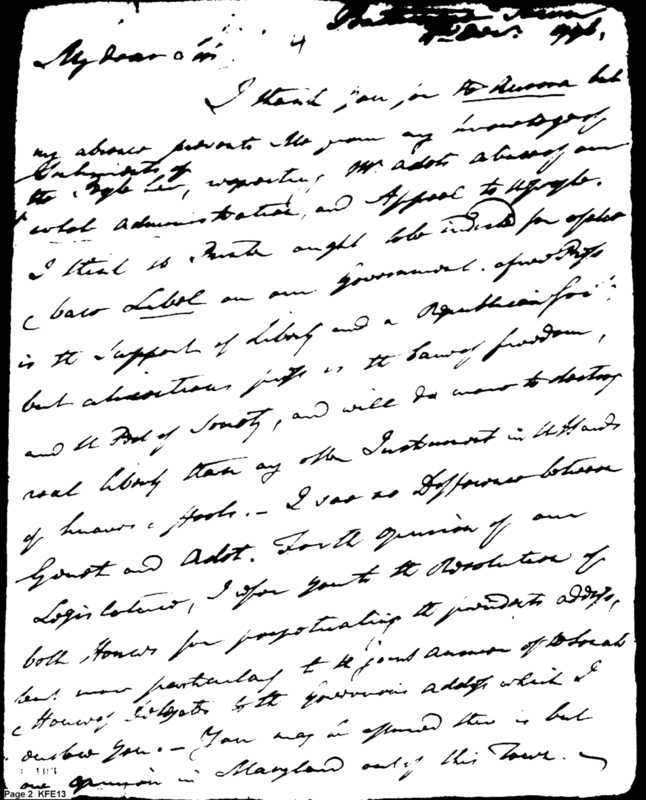 4 Decr. 1796,
My dear Sir
I thank you for the Aurora but
my absence prevents Me from any knowledge of
Sentiments of
the People here, respecting Mr. Adets abuse of our
Administration, and Appeal to the people.
I think the Printer ought to be indicted for a false
& base Libel on our Government. A free Press
is the Support of Liberty and a Republican Govt.
but a licentious press is the bane of freedom,
and the Peril of Society, and will do more to destroy
real liberty than any other Instrument in the Hands
of knaves & fools. – I see no Difference between
Genet and Adet. For the opinion of our
Legislature, I refer you to the Resolution of
both Houses for perpetuating the presidents address,
but more particularly to the joint answer of the Senate
& House of Delegates to the Governors address which I
enclose You. – You may be assured there is but
one opinion in Maryland out of this Town. –
Page 2 KFE13